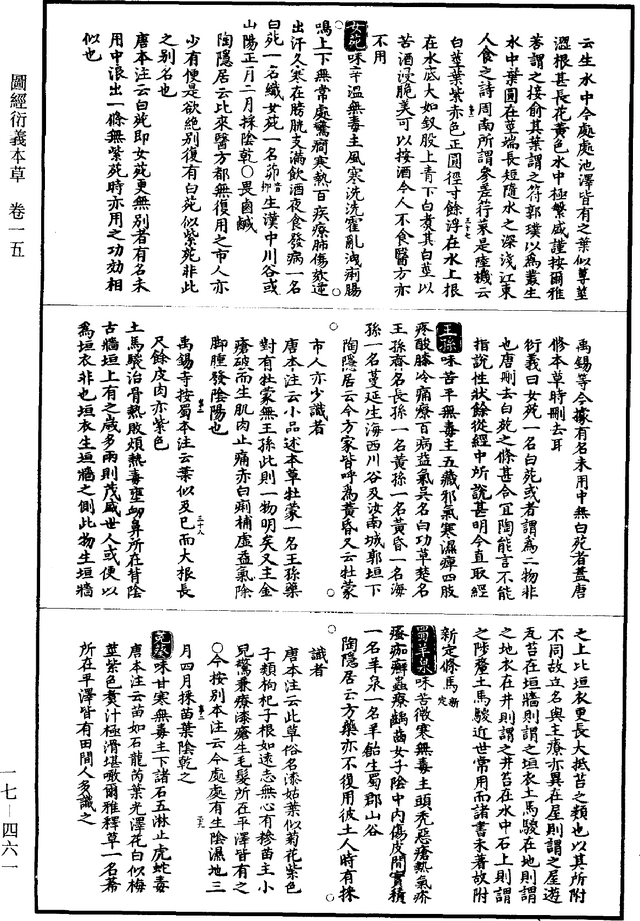 圖經衍義本草 卷一五
云生水中今處處池澤皆有之葉似蓴莖
澀根甚長花黃色水中極繁盛謹按爾雅
莕謂之接余其葉謂之苻郭璞以為叢生
水中葉圓在莖端長短隨水之深淺江東
人食之詩周南所謂參差荇菜是陸機云
白莖葉紫赤色正圓徑寸餘浮在水上根
在水底大如釵股上青下白煑其白莖以
苦酒浸脆美可以按酒今人不食醫方亦
不用
女菀味辛溫無毒主風寒洗洗霍亂洩痢腸
鳴上下無常處驚癇寒熱百疾療肺傷欬逆
出汗久寒在膀胱支滿飲酒夜食發病一名
白菀一名織女菀一名茆音柳生漢中川谷或
山陽正月二月採陰乾○畏鹵鹹
陶隱居云比來醫方都無復用之市人亦
少有便是欲絕別復有白菀似紫菀非此
之別名也
唐本注云白菀即女菀更無別者有名未
用中浪出一條無紫菀時亦用之功效相
似也
禹錫等今據有名未用中無白菀者蓋唐
修本草時刪去耳
衍義曰女菀一名白菀或者謂為二物非
也唐刪去白菀之條甚合宜陶能言不能
指說性狀餘從經中所說甚明今直取經
王孫味苦平無毒主五藏邪氣寒濕痺四肢
疼酸膝冷痛療百病益氣吳名白功草楚名
王孫齊名長孫一名黃孫一名黃昏一名海
孫一名蔓延生海西川谷及汝南城郭垣下
陶隱居云今方家皆呼為黃昏又云牡蒙
市人亦少識者
唐本注云小品述本草牡蒙一名王孫藥
對有牡蒙無王孫此則一物明矣又主金
瘡破而生肌肉止痛赤白痢補虛益氣除
腳腫發陰陽也
禹錫等按蜀本注云葉似及巳而大根長
尺餘皮肉亦紫色
土馬騣治骨熱敗煩熱毒壅衄鼻所在背陰
古牆垣上有之歲多雨則茂盛世人或便以
為垣衣非也垣衣生垣牆之側此物生垣牆
之上比垣衣更長大抵苔之類也以其所附
不同故立名與主療亦異在屋則謂之屋遊
瓦苔在垣牆則謂之垣衣土馬騣在地則謂
之地衣在井則謂之井苔在水中石上則謂
之陟釐土馬騣近世常用而諸書未著故附
新定條馬新定
蜀羊泉味苦微寒無毒主頭禿惡瘡熱氣疥
瘙痂癬蟲療齲齒女子陰中內傷皮間實積
一名羊泉一名羊飴生蜀郡山谷
陶隱居云方藥亦不復用彼土人時有採
識者
唐本注云此草俗名漆姑葉似菊花紫色
子類枸杞子根如遠志無心有糝苗主小
兒驚兼療漆瘡生毛髮所在平澤皆有之
○今按別本注云今處處有生陰濕地三
月四月採苗葉陰乾之
菟葵味甘寒無毒主下諸石五淋止虎蛇毒
唐本注云苗如石龍芮葉光澤花白似梅
莖紫色煑汁極滑堪噉爾雅釋草一名莃
所在平澤皆有田間人多識之
一七—四六一